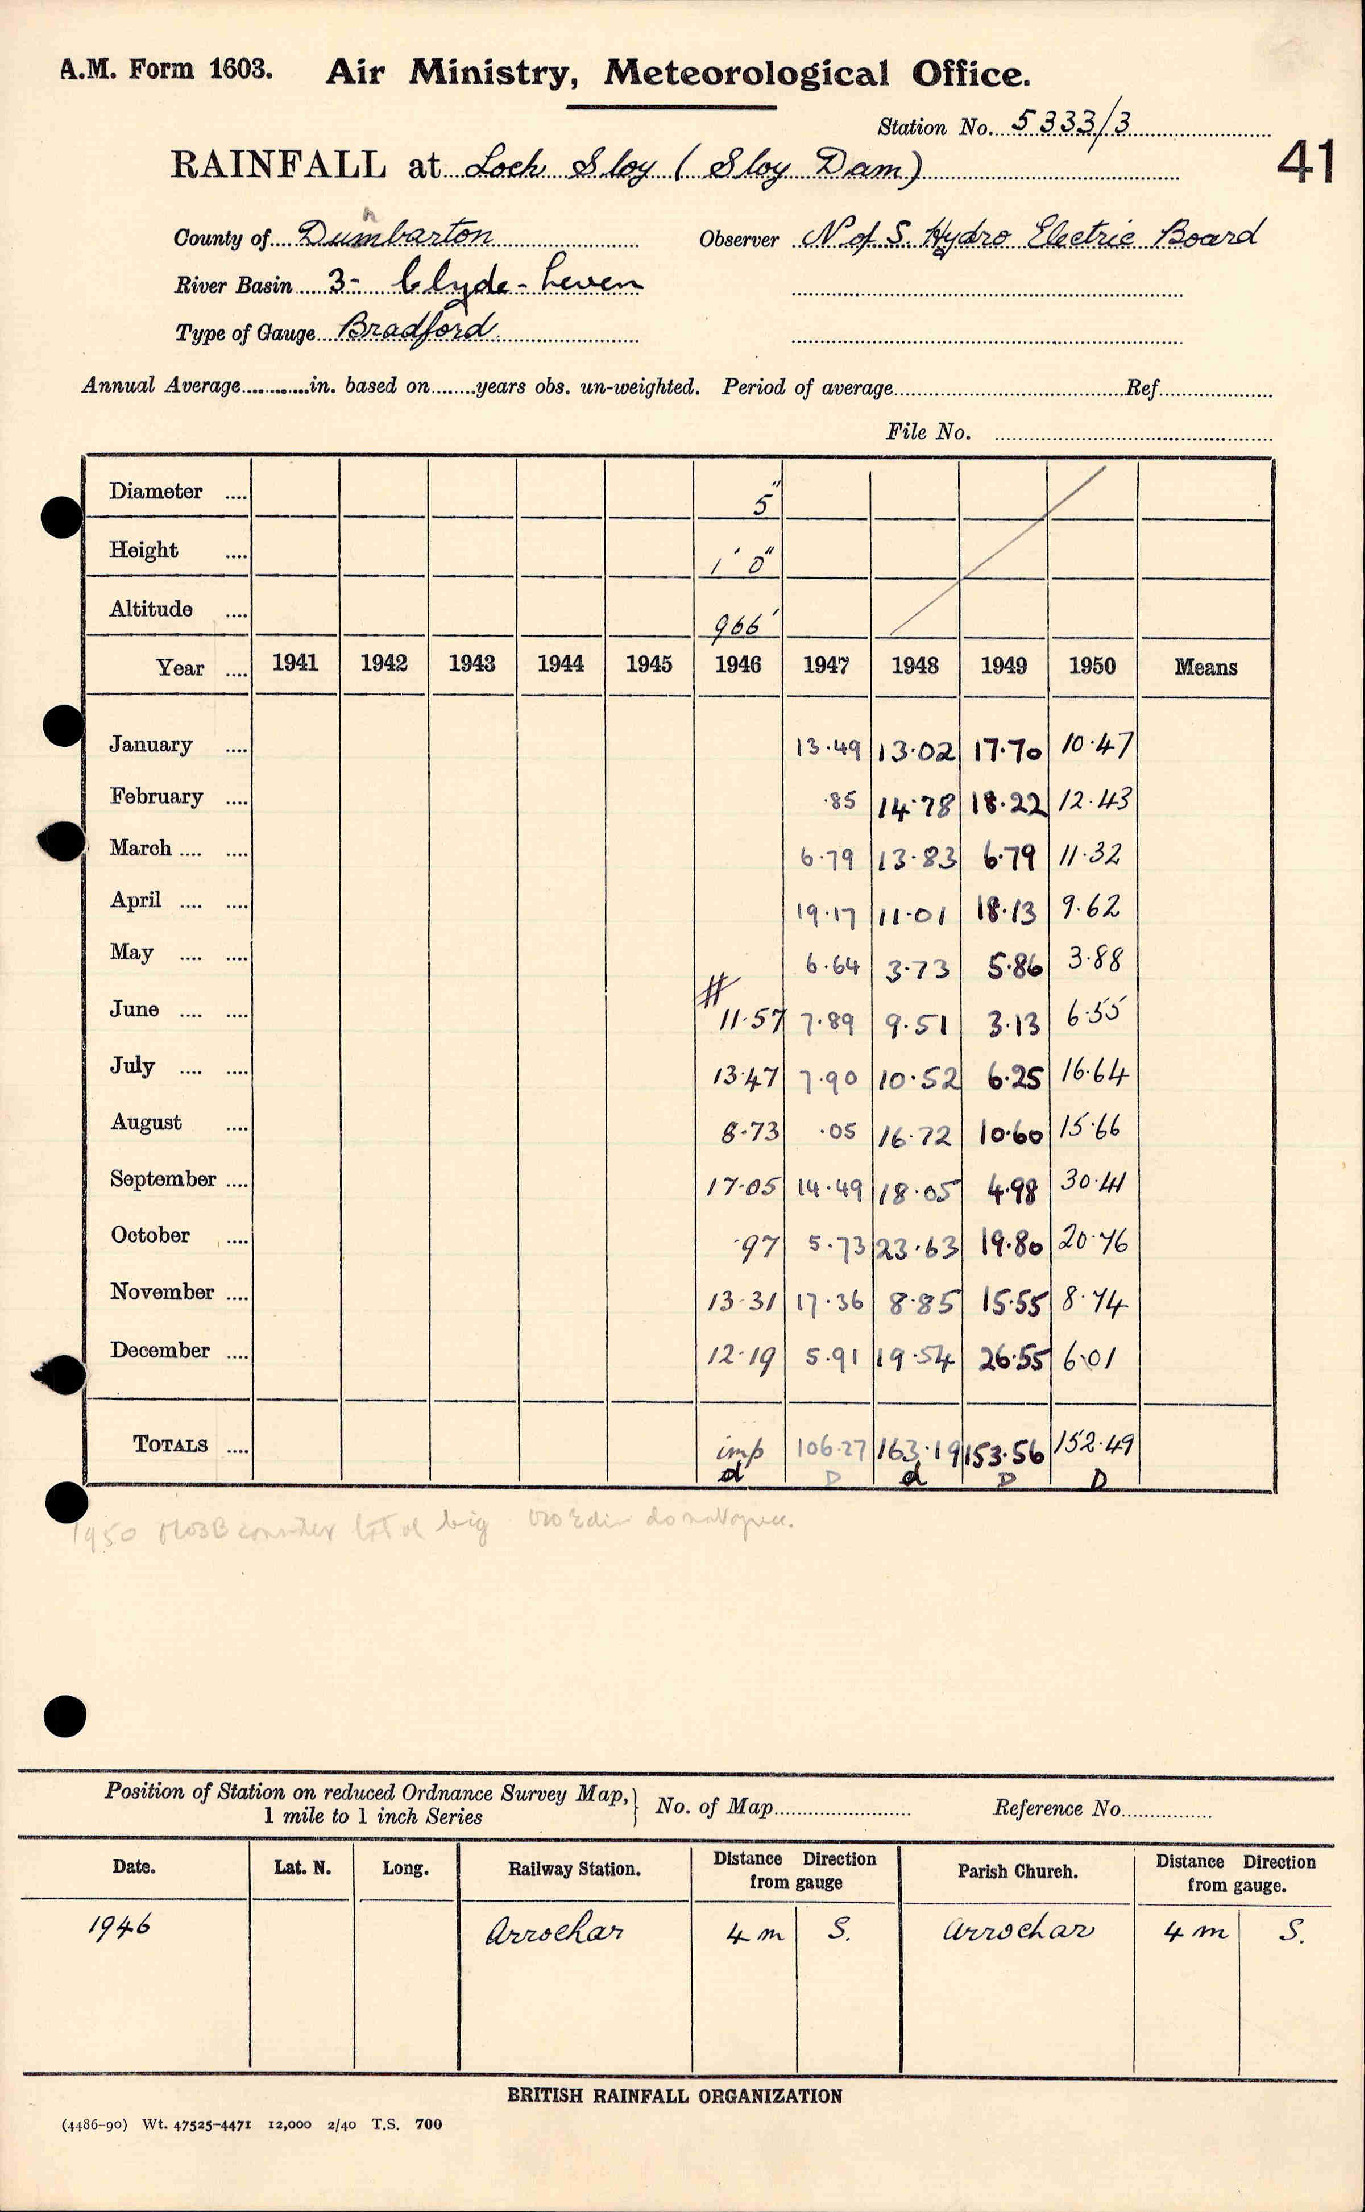 A.M. Form 1603. Air Ministry, Meteorological Office.
Station No. 5333/3
41
RAINFALL at Loch Sloy (Sloy Dam)
County of Dumbarton Observer N of S. Hydro Electric Board
n
River Basin 3- Clyde-Leven
Type of Gauge Bradford
Annual Average............in. based on........years obs. un-weighted. Period of average.......... Ref..........
File No. ..........
Diameter .... 5"
Height .... 1' 0"
Altitude .... 966'
Year .... 1941 1942 1943 1944 1945 1946 1947 1948 1949 1950 Means
January .... 13.49 13.02 17.70 10.47
February .... .85 14.78 18.22 12.43
March .... .... 6.79 13.83 6.79 11.32
April .... .... 19.17 11.01 18.13 9.62
May .... .... 6.64 3.73 5.86 3.88
June .... .... # 11.57 7.89 9.51 3.13 6.55
July .... .... 13.47 7.90 10.52 6.25 16.64
August .... 8.73 .05 16.72 10.60 15.66
September .... 17.05 14.49 18.05 4.98 30.41
October .... .97 5.73 23.63 19.80 20.76
November .... 13.31 17.36 8.85 15.55 8.74
December .... 12.19 5.91 19.54 26.55 6.01
TOTALS .... imp 106.27 163.19 153.56 152.49
d D d D D
1950 consider total big do not agree.
Position of Station on reduced Ordnance Survey Map, } No. of Map.......... Reference No..........
1 mile to 1 inch Series
Date. Lat. N. Long. Railway Station. Distance Direction from gauge Parish Church. Distance Direction from gauge.
1946 Arrochar 4 m S. Arrochar 4 m S.
BRITISH RAINFALL ORGANIZATION
(4486-90) Wt. 47525-4471 12,000 2/40 T.S. 700